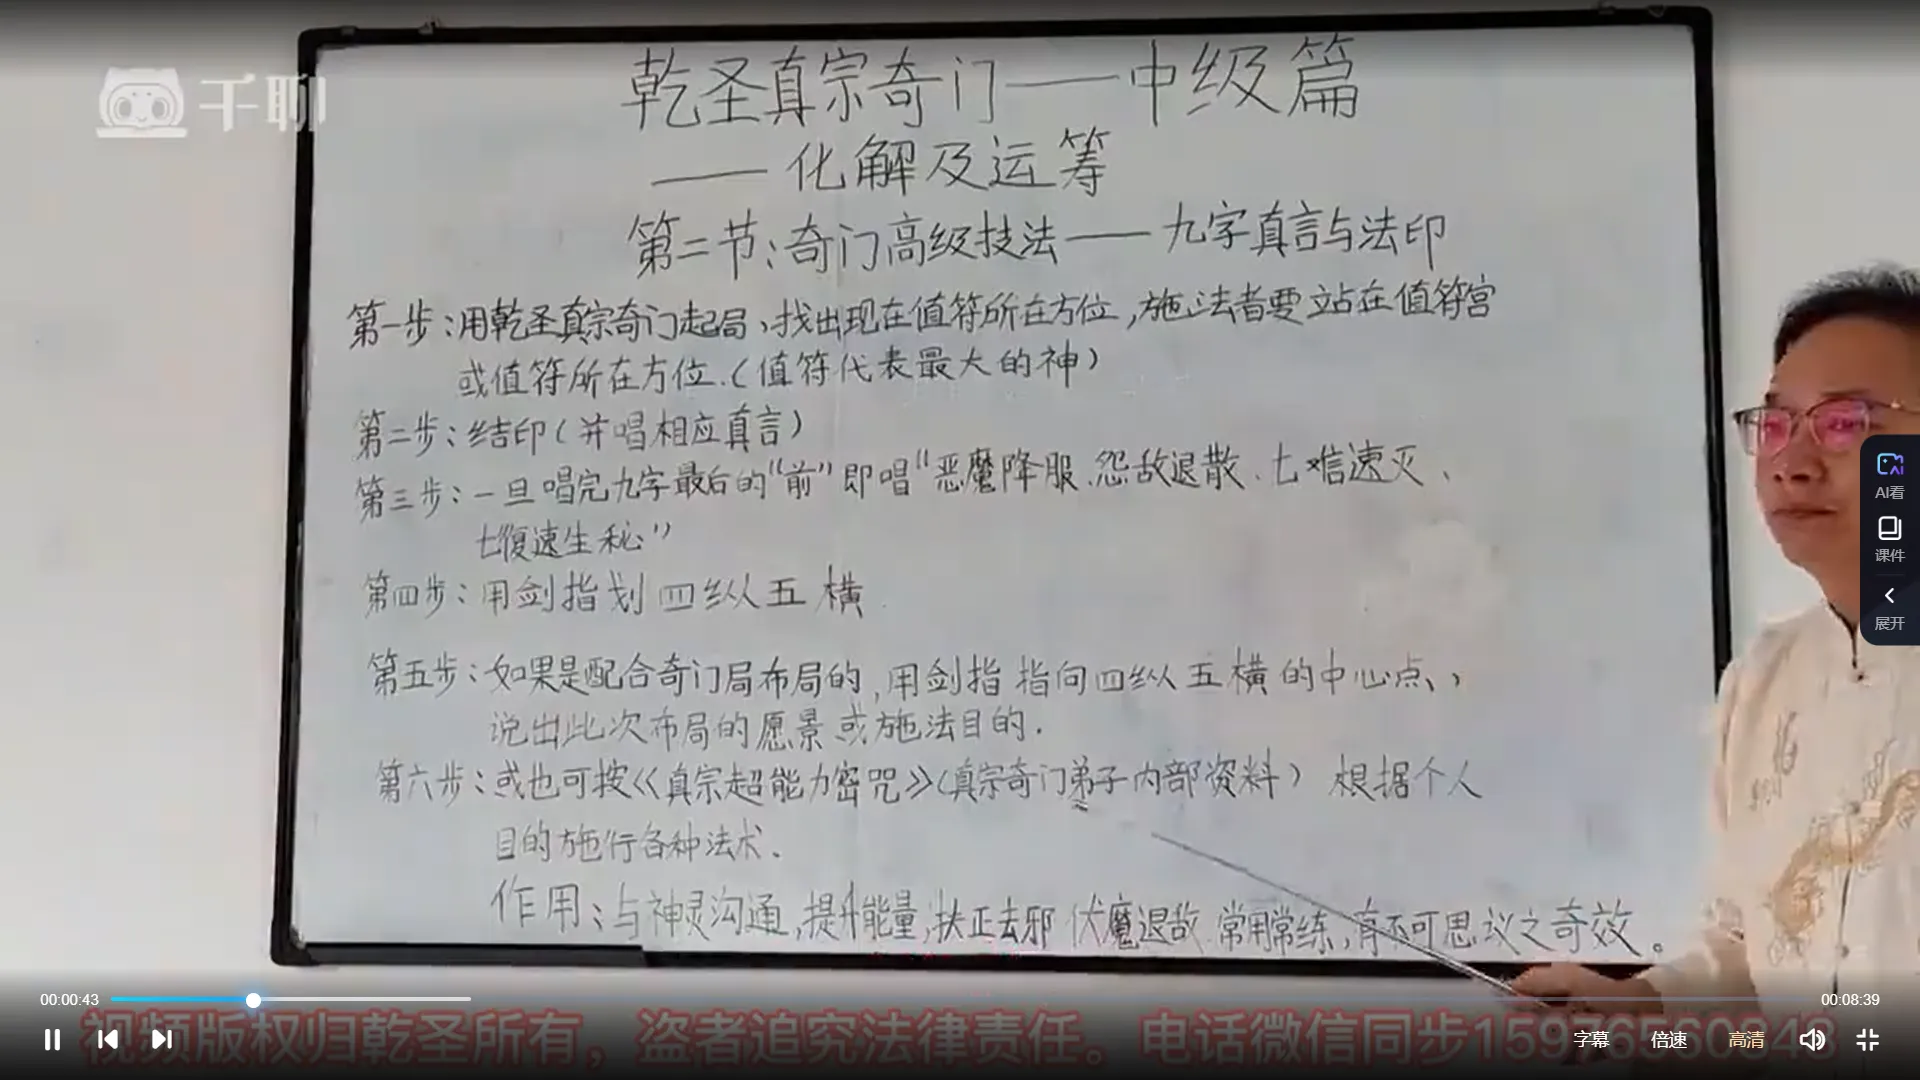 千聊
乾圣真宗奇门——中级篇
——化解及运筹
第二节：奇门高级技法——九字真言与法印
第一步：用乾圣真宗奇门起局、找出现在值符所在方位，施法者要站在值符宫
或值符所在方位.（值符代表最大的神）
第二步：结印（并唱相应真言）
第三步：一旦唱完九字最后的“前”即唱“恶魔降服、怨敌退散、七难速灭、
七復速生秘”
第四步：用剑指划四纵五横
第五步：如果是配合奇门局布局的，用剑指指向四纵五横的中心点、，
说出此次布局的愿景或施法目的.
第六步：或也可按《真宗超能力密咒》（真宗奇门弟子内部资料）根据个人
目的施行各种法术.
作用：与神灵沟通,提升能量,扶正去邪 伏魔退敌 常用常练,有不可思议之奇效。
AI看
课件
展开
00:00:43
00:08:39
视频版权归乾圣所有，盗者追究法律责任。电话微信同步
字幕
倍速
高清